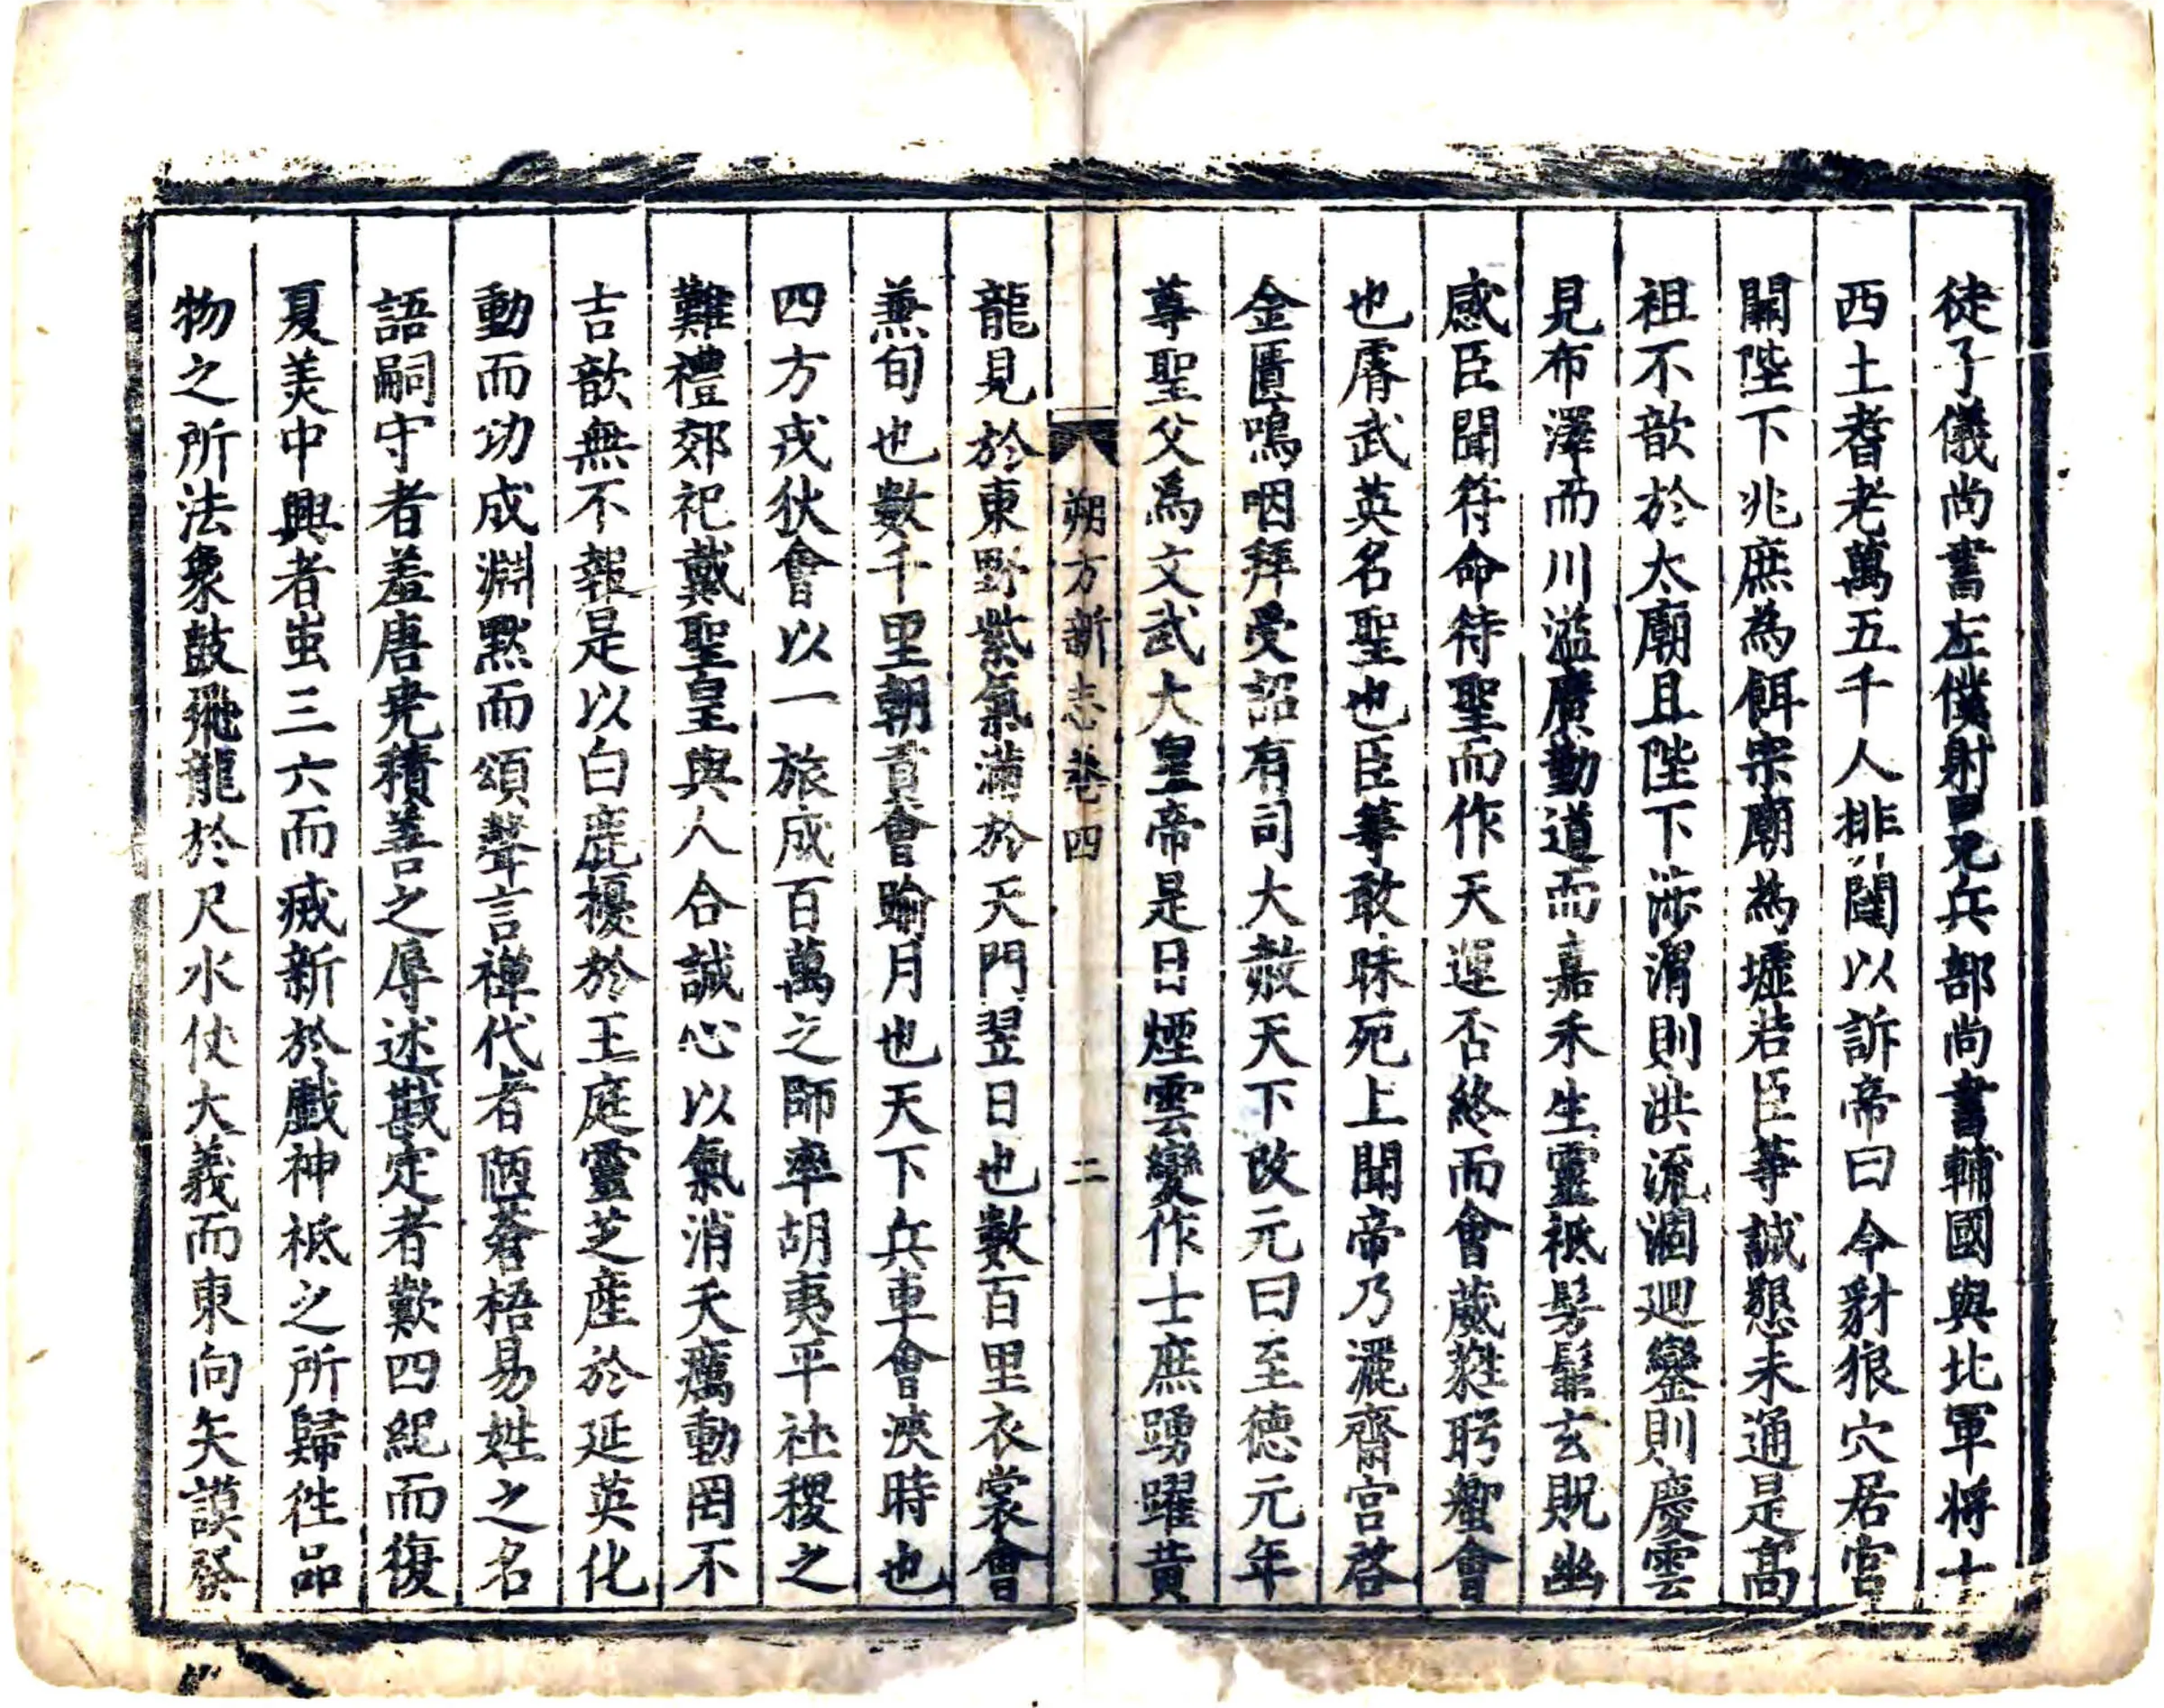 徒子儀尚書左僕射冕兵部尚書輔國與北軍將士
西土耆老萬五千人排閽以訴帝曰今豺狼穴居宮
闕陛下兆庶為餌宗廟為墟若臣等誠懇未通是高
祖不歆於太廟且陛下涉渭則洪流涸迴鑾則慶雲
見布澤而川溢廣勤道而嘉禾生靈祇髣髴玄貺幽
感臣聞符命待聖而作天運否終而會葳蕤肹蠁會
也膺武英名聖也臣等敢昧死上聞帝乃灑齋宮啓
金匱嗚咽拜受詔有司大赦天下改元曰至德元年
尊聖父爲文武大皇帝是日煙雲變作士庶踴躍黃
朔方新志卷四 二
龍見於東野紫氣滿於天門翌日也數百里衣裳會
兼旬也數千里朝貢會踰月也天下兵車會浹時也
四方戎狄會以一旅成百萬之師率胡夷平社稷之
難禮郊祀戴聖皇與人合誠心以氣消夭癘動罔不
吉歆無不報是以白鹿擾於王庭靈芝產於延英化
動而功成淵默而頌聲言禪代者陋蒼梧易姓之名
語嗣守者羞唐尭積善之辱述戡定者歎四紀而復
夏美中興者蚩三六而滅新於戲神祇之所歸徃品
物之所法象鼓飛龍於尺水仗大義而東向矢謨發